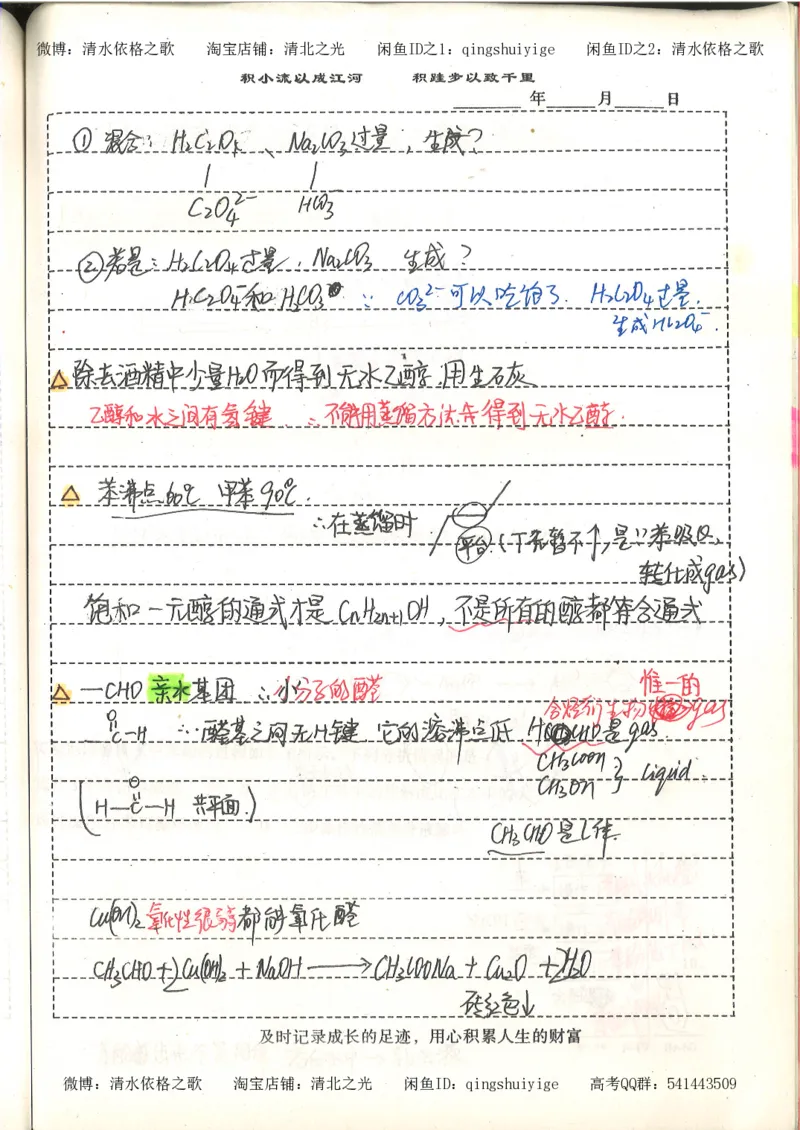 微博：清水依格之歌 淘宝店铺：清北之光 闲鱼ID之1：qingshuiyige 闲鱼ID之2：清水依格之歌
积小流以成江河 积跬步以致千里
年 月 日
① 混合：H₂C₂O₄、Na₂CO₃过量，生成？
C₂O₄²⁻ HCO₃⁻
②若是：H₂C₂O₄过量，Na₂CO₃ 生成？
HC₂O₄⁻和H₂CO₃ ∵ CO₃²⁻可以吃饱了. H₂C₂O₄过量.
生成HC₂O₄⁻.
△除去酒精中少量H₂O而得到无水乙醇 用生石灰
乙醇和水之间有氢键 ∴不能用蒸馏方法来得到无水乙醇.
△ 苯沸点60℃ 甲苯90℃.
∴在蒸馏时
平台(T先暂不↑,是∵苯吸Q,
转化成gas)
饱和一元醇的通式才是CnH2n+1OH,不是所有的醇都符合通式
△ —CHO 亲水基团 ∴小分子的醛
惟一的
含烃衍生物 gas
O
‖
-C-H ∵醛基之间无H键 它的溶沸点低 HCHO是gas
CH₃COOH
CH₃OH } liquid.
O
‖
(H—C—H 共平面.)
CH₃CHO是L体.
Cu(OH)₂氧化性很弱都能氧化醛
CH₃CHO+2Cu(OH)₂+NaOH→CH₃COONa+Cu₂O+2H₂O
砖红色↓
及时记录成长的足迹，用心积累人生的财富
微博：清水依格之歌 淘宝店铺：清北之光 闲鱼ID：qingshuiyige 高考QQ群：541443509